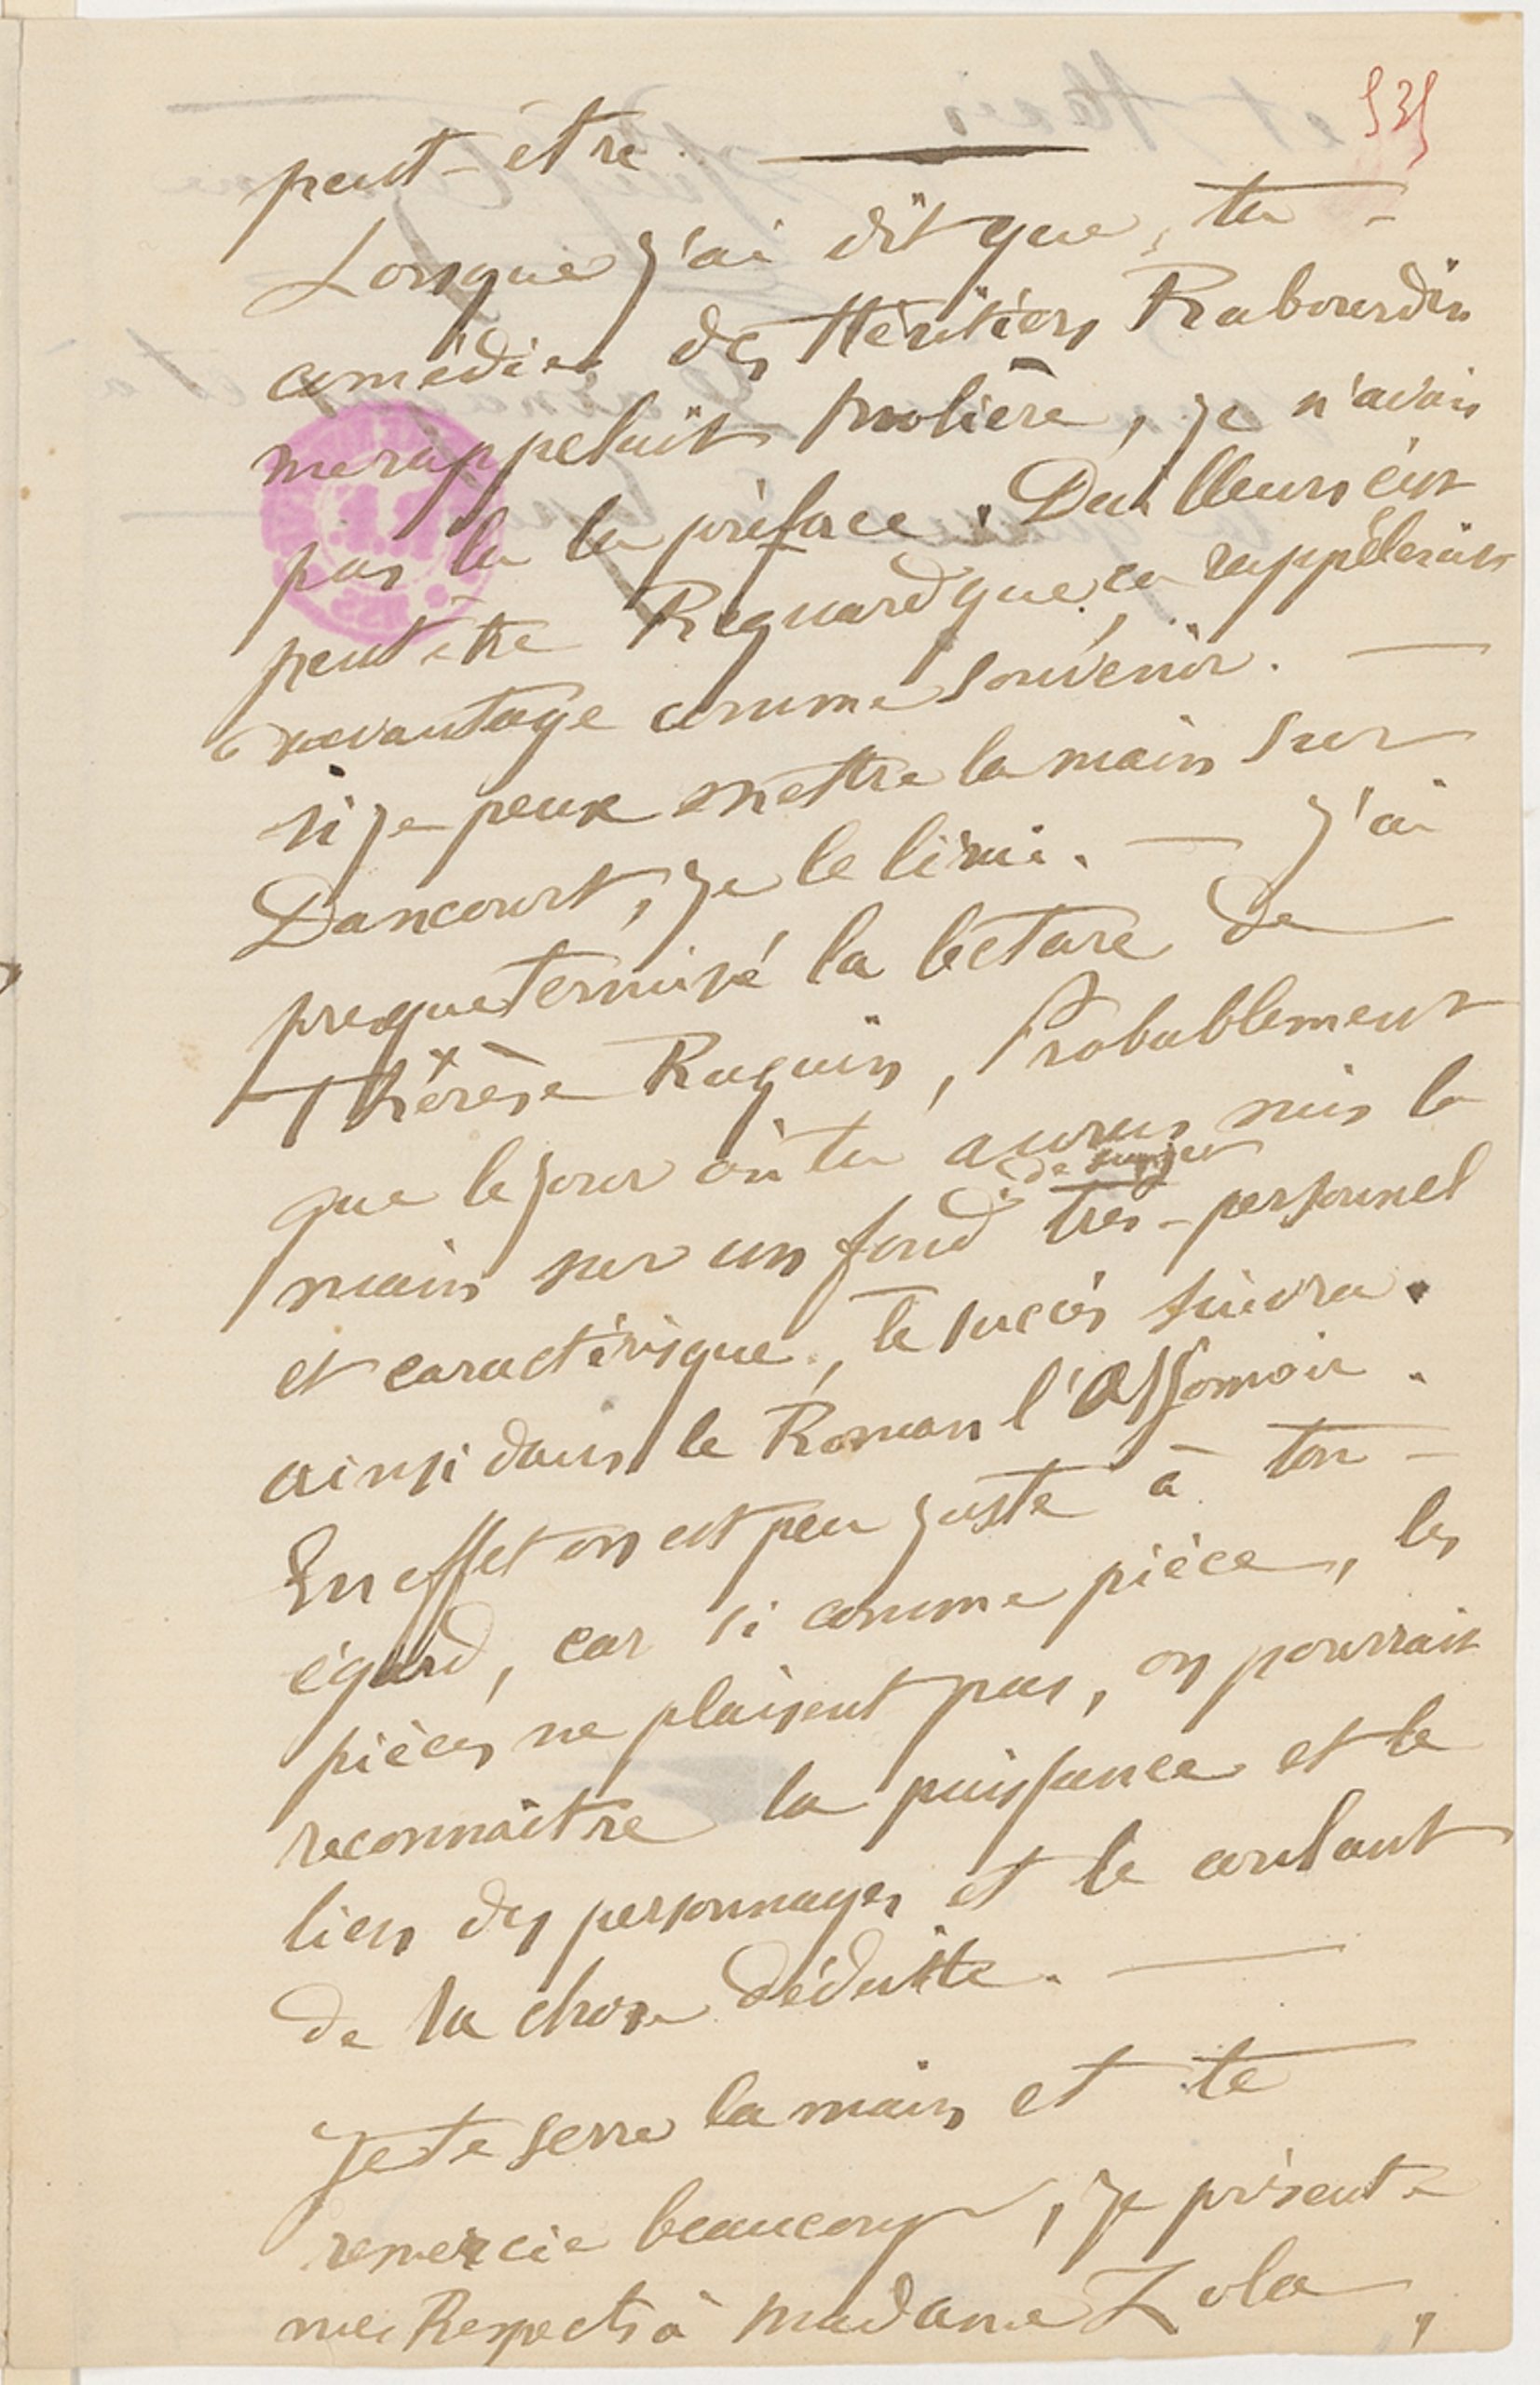 535
peut-être.
Lorsque j'ai dit que, ta
comédie des Héritiers Rabourdin
me rappelait Molière, je n'avais
pas lu la préface. D'ailleurs c'est
peut être Regnard que ça rappelerait
davantage comme souvenir.
si je peux mettre la main sur
Dancourt, je le lirai. — J'ai
presque terminé la lecture de
Thérèse Raquin, Probablement
que le jour où tu auras mis la
de sujet
main sur un fond très-personnel
et caractérisque, le succès suivra.
ainsi dans le Roman l'Assomoir.
En effet on est peu juste à ton
égard, car si comme pièce, les
pièces ne plaisent pas, on pourrait
reconnaître la puissance et le
lien des personnages et le coulant
de la chose déduite.
Je te serre la main et te
remercie beaucoup, je présente
mes Respects à madame Zola,